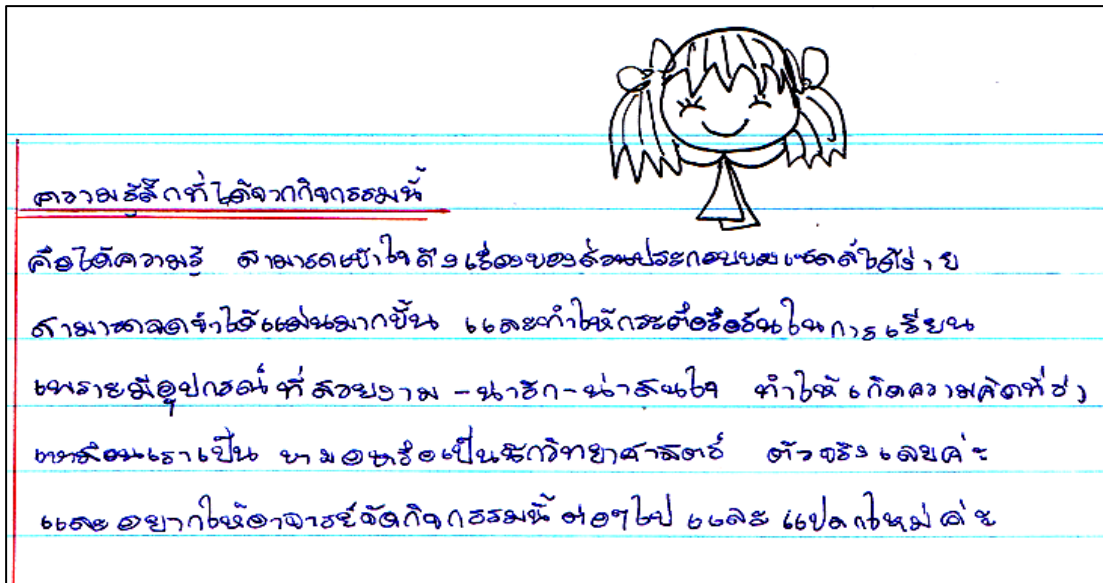 ความรู้สึกที่ได้จากกิจกรรมนี้
คือได้ความรู้ สามารถเข้าใจถึงเรื่องของส่วนประกอบของเซลล์ได้ง่าย
สามารถจดจำได้แม่นมากขึ้น และทำให้กระตือรือร้นในการเรียน
เพราะมีอุปกรณ์ที่สวยงาม -น่ารัก-น่าสนใจ ทำให้เกิดความคิดที่ว่า
เหมือนเราเป็น หมอหรือเป็นนักวิทยาศาสตร์ ตัวจริงเลยค่ะ
และอยากให้อาจารย์จัดกิจกรรมนี้ต่อๆไป และ แปลกใหม่ค่ะ